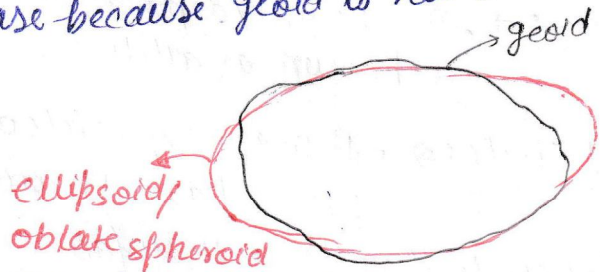 because geoid is
geoid
ellipsoid/
oblate spheroid